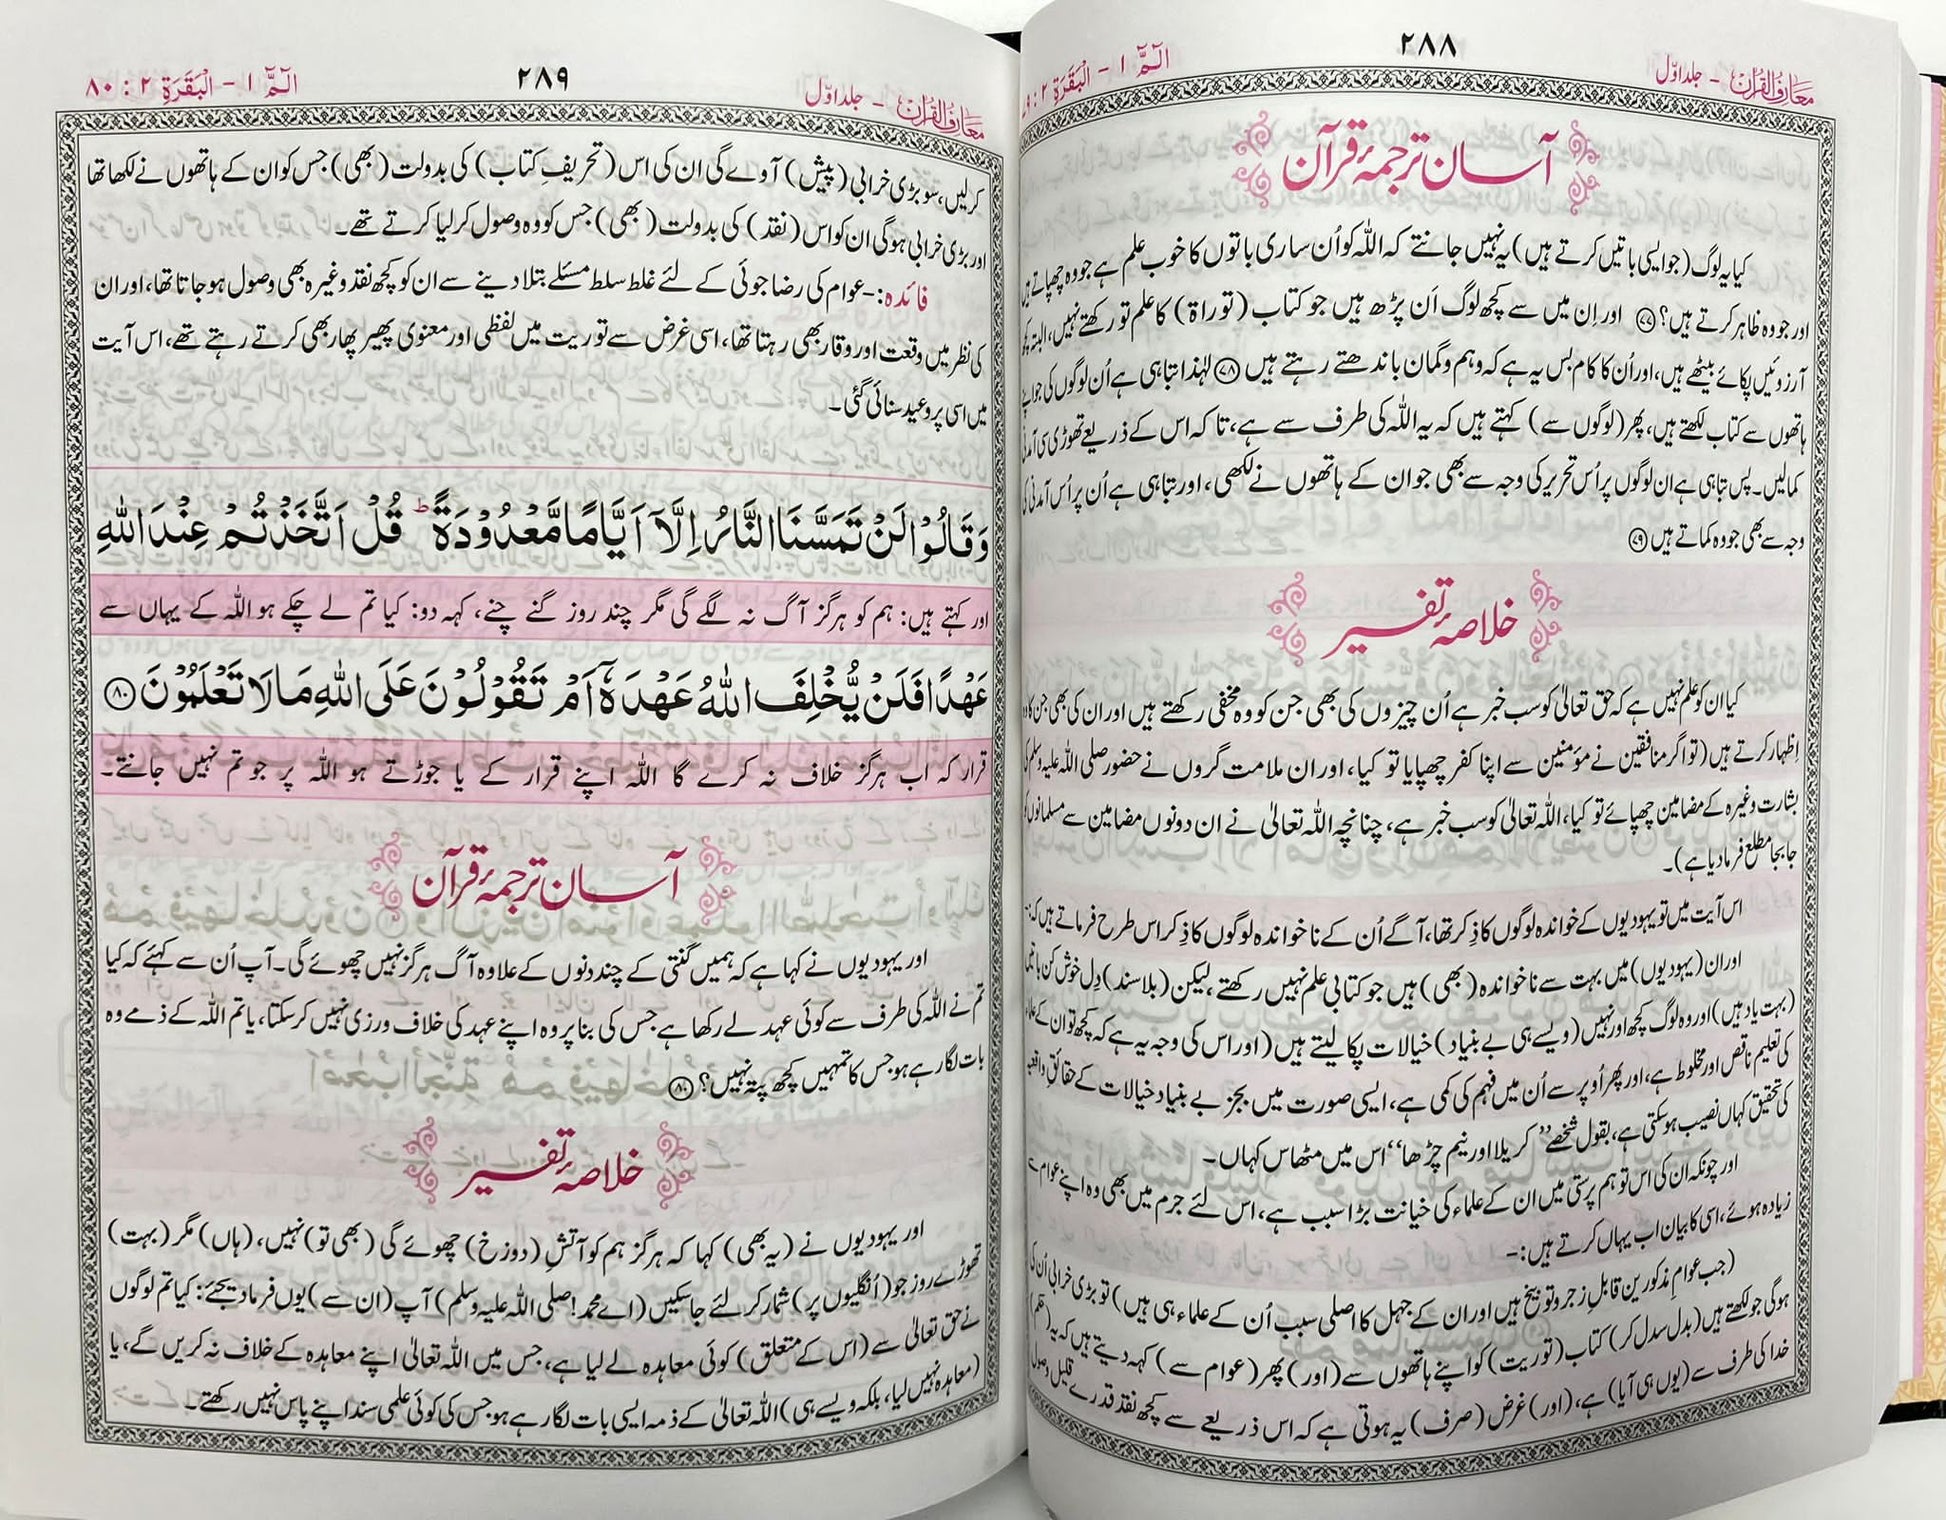 معارف القرآن - جلد اوّل
۲۸۸
الٓمّٓ ۱ - البَقَرَة ۲ :
آسان ترجمۂ قرآن
کیا یہ لوگ (جو ایسی باتیں کرتے ہیں) یہ نہیں جانتے کہ اللہ کو اُن ساری باتوں کا خوب علم ہے جو وہ چھپاتے ہیں
اور جو وہ ظاہر کرتے ہیں؟ ﴿۷۷﴾ اور اِن میں سے کچھ لوگ اَن پڑھ ہیں جو کتاب (توراۃ) کا علم تو رکھتے نہیں، البتہ کچھ
آرزوئیں پکائے بیٹھے ہیں، اور اُن کا کام بس یہ ہے کہ وہم و گمان باندھتے رہتے ہیں ﴿۷۸﴾ لہٰذا تباہی ہے اُن لوگوں کی جو اپنے
ہاتھوں سے کتاب لکھتے ہیں، پھر (لوگوں سے) کہتے ہیں کہ یہ اللہ کی طرف سے ہے، تاکہ اس کے ذریعے تھوڑی سی آمدنی
کمالیں۔ پس تباہی ہے ان لوگوں پر اُس تحریر کی وجہ سے بھی جو ان کے ہاتھوں نے لکھی، اور تباہی ہے اُن پر اُس آمدنی کی
وجہ سے بھی جو وہ کماتے ہیں ﴿۷۹﴾
خلاصۂ تفسیر
کیا ان کو علم نہیں ہے کہ حق تعالیٰ کو سب خبر ہے اُن چیزوں کی بھی جن کو وہ مخفی رکھتے ہیں اور ان کی بھی جن کا وہ
اِظہار کرتے ہیں (تو اگر منافقین نے مؤمنین سے اپنا کفر چھپایا تو کیا، اور ان ملامت گروں نے حضور صلی اللہ علیہ وسلم کی
بشارت وغیرہ کے مضامین چھپائے تو کیا، اللہ تعالیٰ کو سب خبر ہے، چنانچہ اللہ تعالیٰ نے ان دونوں مضامین سے مسلمانوں کو
جابجا مطلع فرمادیا ہے)۔
اس آیت میں تو یہودیوں کے خواندہ لوگوں کا ذِکر تھا، آگے اُن کے ناخواندہ لوگوں کا ذِکر اس طرح فرماتے ہیں کہ:-
اور ان (یہودیوں) میں بہت سے ناخواندہ (بھی) ہیں جو کتابی علم نہیں رکھتے، لیکن (بلاسند) دِل خوش کن باتیں
(بہت یاد ہیں) اور وہ لوگ کچھ اور نہیں (ویسے ہی بے بنیاد) خیالات پکا لیتے ہیں (اور اس کی وجہ یہ ہے کہ کچھ تو ان کے علماء
کی تعلیم ناقص اور مخلوط ہے، اور پھر اُوپر سے اُن میں فہم کی کمی ہے، ایسی صورت میں بجز بے بنیاد خیالات کے حقائقِ واقعیہ
کی تحقیق کہاں نصیب ہوسکتی ہے، بقول شخصے ”کریلا اور نیم چڑھا“ اس میں مٹھاس کہاں۔
اور چونکہ ان کی اس توہم پرستی میں ان کے علماء کی خیانت بڑا سبب ہے، اس لئے جرم میں بھی وہ اپنے عوام سے
زیادہ ہوئے، اسی کا بیان اب یہاں کرتے ہیں:-
(جب عوام مذکورین قابلِ زجر و توبیخ ہیں اور ان کے جہل کا اصلی سبب اُن کے علماء ہی ہیں) تو بڑی خرابی اُن کی
ہوگی جو لکھتے ہیں (بدل سدل کر) کتاب (توریت) کو اپنے ہاتھوں سے (اور) پھر (عوام سے) کہہ دیتے ہیں کہ یہ (حکم)
خدا کی طرف سے (یوں ہی آیا) ہے، (اور) غرض (صرف) یہ ہوتی ہے کہ اس ذریعے سے کچھ نقد قدرے قلیل وصول
معارف القرآن - جلد اوّل
۲۸۹
الٓمّٓ ۱ - البَقَرَة ۲ : ۸۰
کرلیں، سو بڑی خرابی (پیش) آوے گی ان کی اس (تحریفِ کتاب) کی بدولت (بھی) جس کو ان کے ہاتھوں نے لکھا تھا
اور بڑی خرابی ہوگی ان کو اس (نقد) کی بدولت (بھی) جس کو وہ وصول کرلیا کرتے تھے۔
فائدہ:- عوام کی رضا جوئی کے لئے غلط سلط مسئلے بتلا دینے سے ان کو کچھ نقد وغیرہ بھی وصول ہوجاتا تھا، اور ان
کی نظر میں وقعت اور وقار بھی رہتا تھا، اسی غرض سے توریت میں لفظی اور معنوی پھیر پھار بھی کرتے رہتے تھے، اس آیت
میں اسی پر وعید سنائی گئی۔
وَقَالُوْا لَنْ تَمَسَّنَا النَّارُ اِلَّآ اَيَّامًا مَّعْدُوْدَةً ؕ قُلْ اَتَّخَذْتُمْ عِنْدَ اللّٰهِ
اور کہتے ہیں: ہم کو ہرگز آگ نہ لگے گی مگر چند روز گنے چنے، کہہ دو: کیا تم لے چکے ہو اللہ کے یہاں سے
عَهْدًا فَلَنْ يُّخْلِفَ اللّٰهُ عَهْدَهٗٓ اَمْ تَقُوْلُوْنَ عَلَى اللّٰهِ مَا لَا تَعْلَمُوْنَ ﴿۸۰﴾
قرار کہ اب ہرگز خلاف نہ کرے گا اللہ اپنے قرار کے یا جوڑتے ہو اللہ پر جو تم نہیں جانتے۔
آسان ترجمۂ قرآن
اور یہودیوں نے کہا ہے کہ ہمیں گنتی کے چند دنوں کے علاوہ آگ ہرگز نہیں چھوئے گی۔ آپ اُن سے کہئے کہ کیا
تم نے اللہ کی طرف سے کوئی عہد لے رکھا ہے جس کی بنا پر وہ اپنے عہد کی خلاف ورزی نہیں کرسکتا، یا تم اللہ کے ذمے وہ
بات لگا رہے ہو جس کا تمہیں کچھ پتہ نہیں؟ ﴿۸۰﴾
خلاصۂ تفسیر
اور یہودیوں نے (یہ بھی) کہا کہ ہرگز ہم کو آتشِ (دوزخ) چھوئے گی (بھی تو) نہیں، (ہاں) مگر (بہت)
تھوڑے روز جو (اُنگلیوں پر) شمار کرلئے جاسکیں (اے محمد! صلی اللہ علیہ وسلم) آپ (ان سے) یوں فرمادیجئے: کیا تم لوگوں
نے حق تعالیٰ سے (اس کے متعلق) کوئی معاہدہ لے لیا ہے، جس میں اللہ تعالیٰ اپنے معاہدہ کے خلاف نہ کریں گے، یا
(معاہدہ نہیں لیا، بلکہ ویسے ہی) اللہ تعالیٰ کے ذمہ ایسی بات لگا رہے ہو جس کی کوئی علمی سند اپنے پاس نہیں رکھتے۔